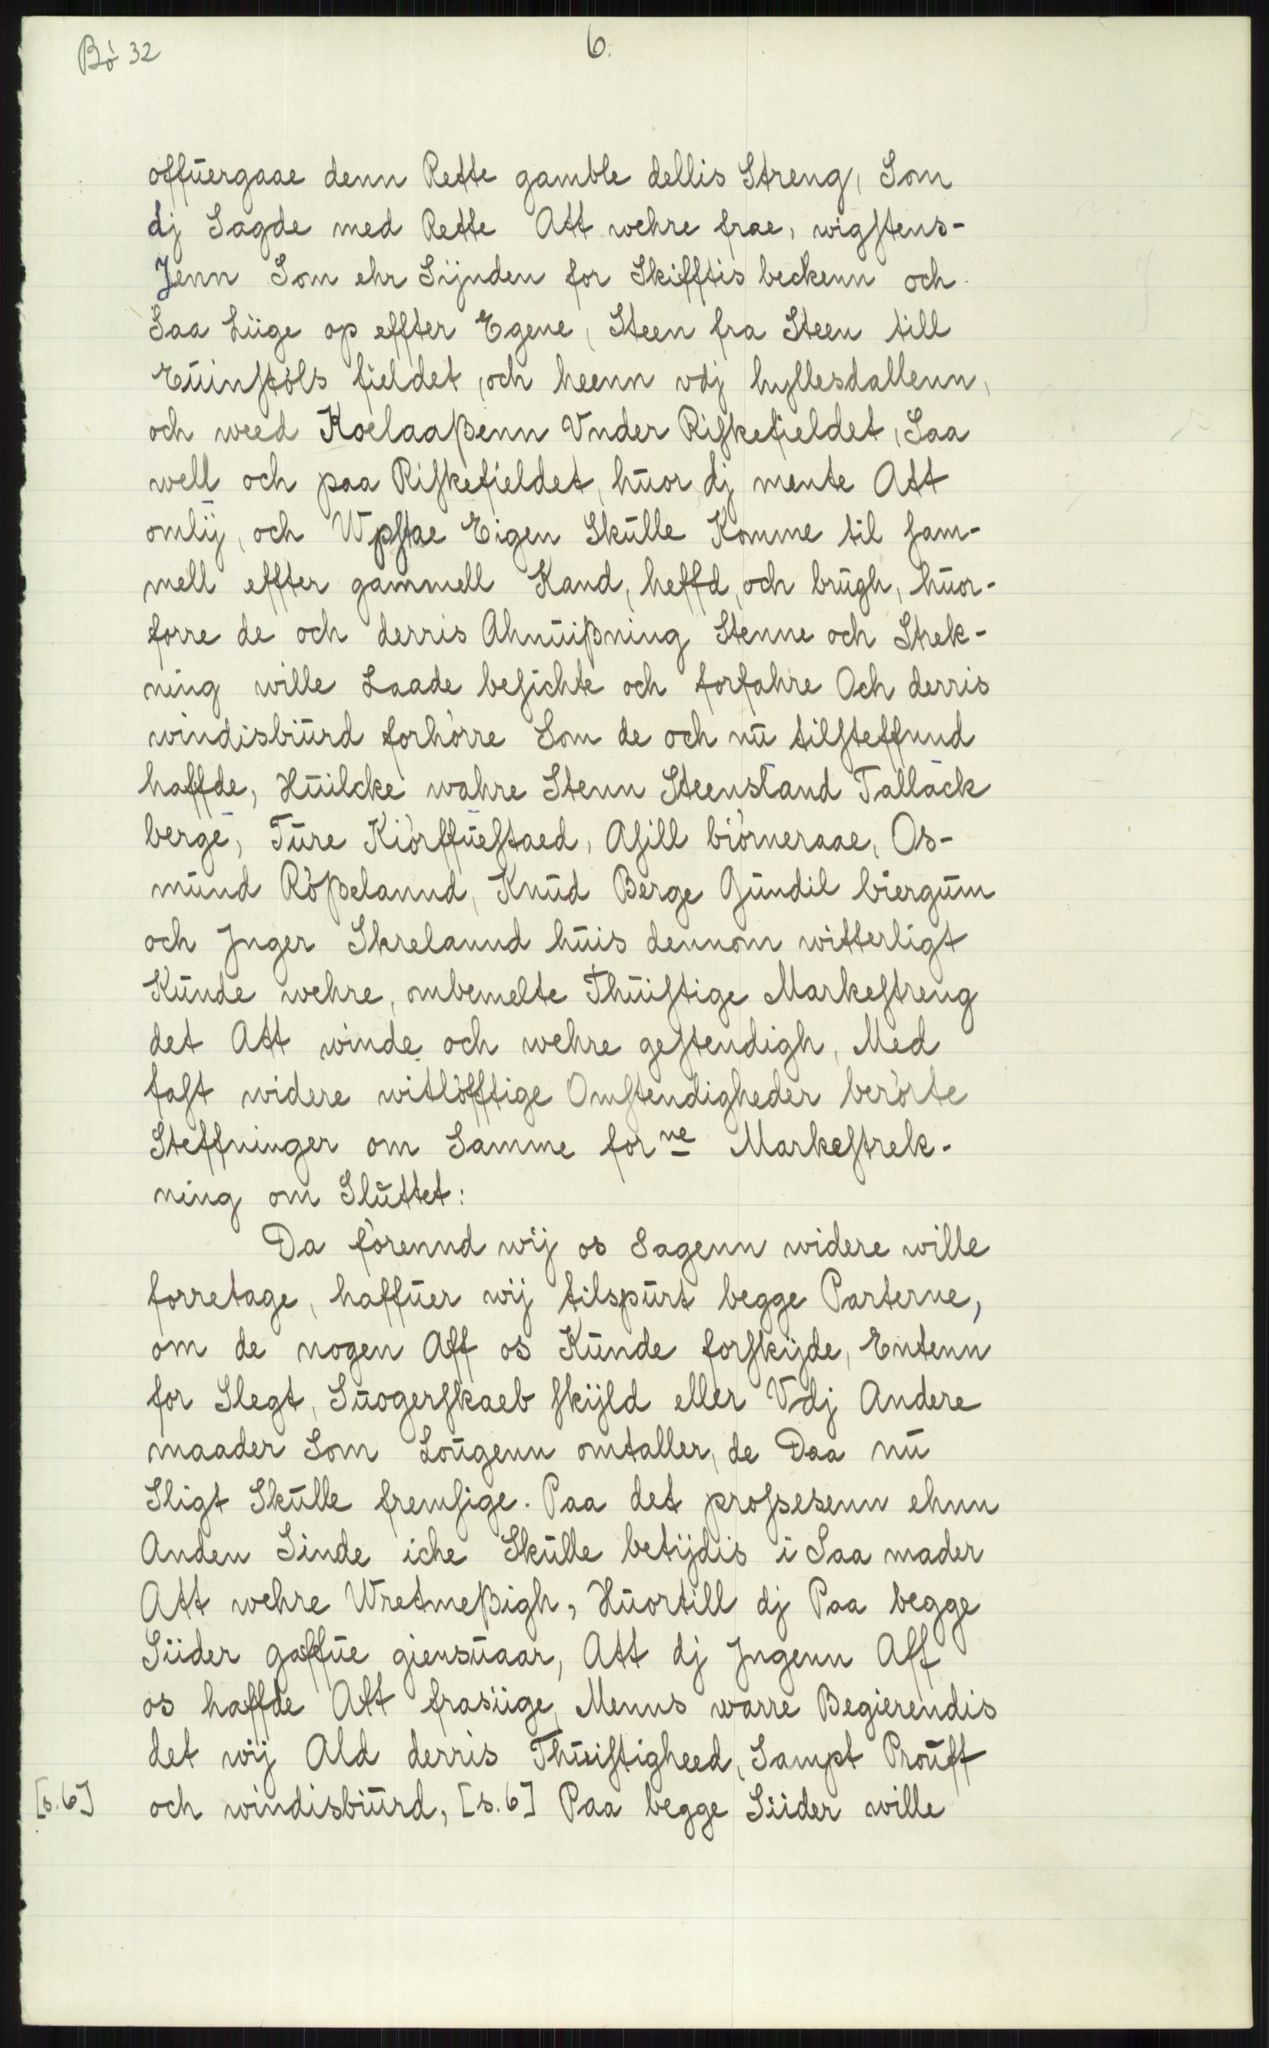 Bö 32
6.
offuergaae denn Rette gamble dellis Streng, Som
dj Sagde med Rette Att wehre frae, wigstens-
Jenn Som ehr Sijnden for Skifftis beckenn och
Saa Liige op effter Egene, Steen fra Steen till
Euinstöls fieldet, och heenn vdj hyllesdallenn,
och weed Koelaaßenn Vnder Riskefieldet, Saa
well och paa Riskefieldet, huor dj mente Att
omlij, och Wpstae Eigen Skulle Komme til sam-
mell effter gammell Kand, heffd, och brugh, huor-
forre de och derris Ahnuißning Stenne och Strek-
ning wille Laade besichte och forfahre Och derris
windisbiurd forhörre Som de och nu tilsteffnud
haffde, Huilcke wahre Stenn Steensland Tallack
berge, Ture Kiörffuestaed, Asill biörneraae, Os-
mund Rößelannd, Knud Berge Gundil biergum
och Jnger Skrelannd huis dennom witterligt
Kunde wehre, ombemelte Thuistige Markestreng
det Att winde och wehre gestendigh, Med
fast widere witlöfftige Omstendigheder berörte
Steffninger om Samme forne Markestrek-
ning om Sluttet:
Da förennd wij os Sagenn widere wille
forretage, haffuer wij tilspurt begge Parterne,
om de nogen Aff os Kunde forskijde, Entenn
for Slegt, Suogerskaeb skijld eller Vdj Andere
maader Som Lougenn omtaller, de Daa nu
Sligt Skulle fremsige. Paa det prossesenn ehnn
Anden Sinde iche Skulle betijdis i Saa mader
Att wehre Wretmeßigh, Huortill dj Paa begge
Siider gaffue giensuaar, Att dj Jngenn Aff
os haffde Att frasiige, Menns warre Begierendis
det wij Ald derris Thuistigheed, Sampt Prouff
[s.6] och windisbiurd, [s.6] Paa begge Siider wille